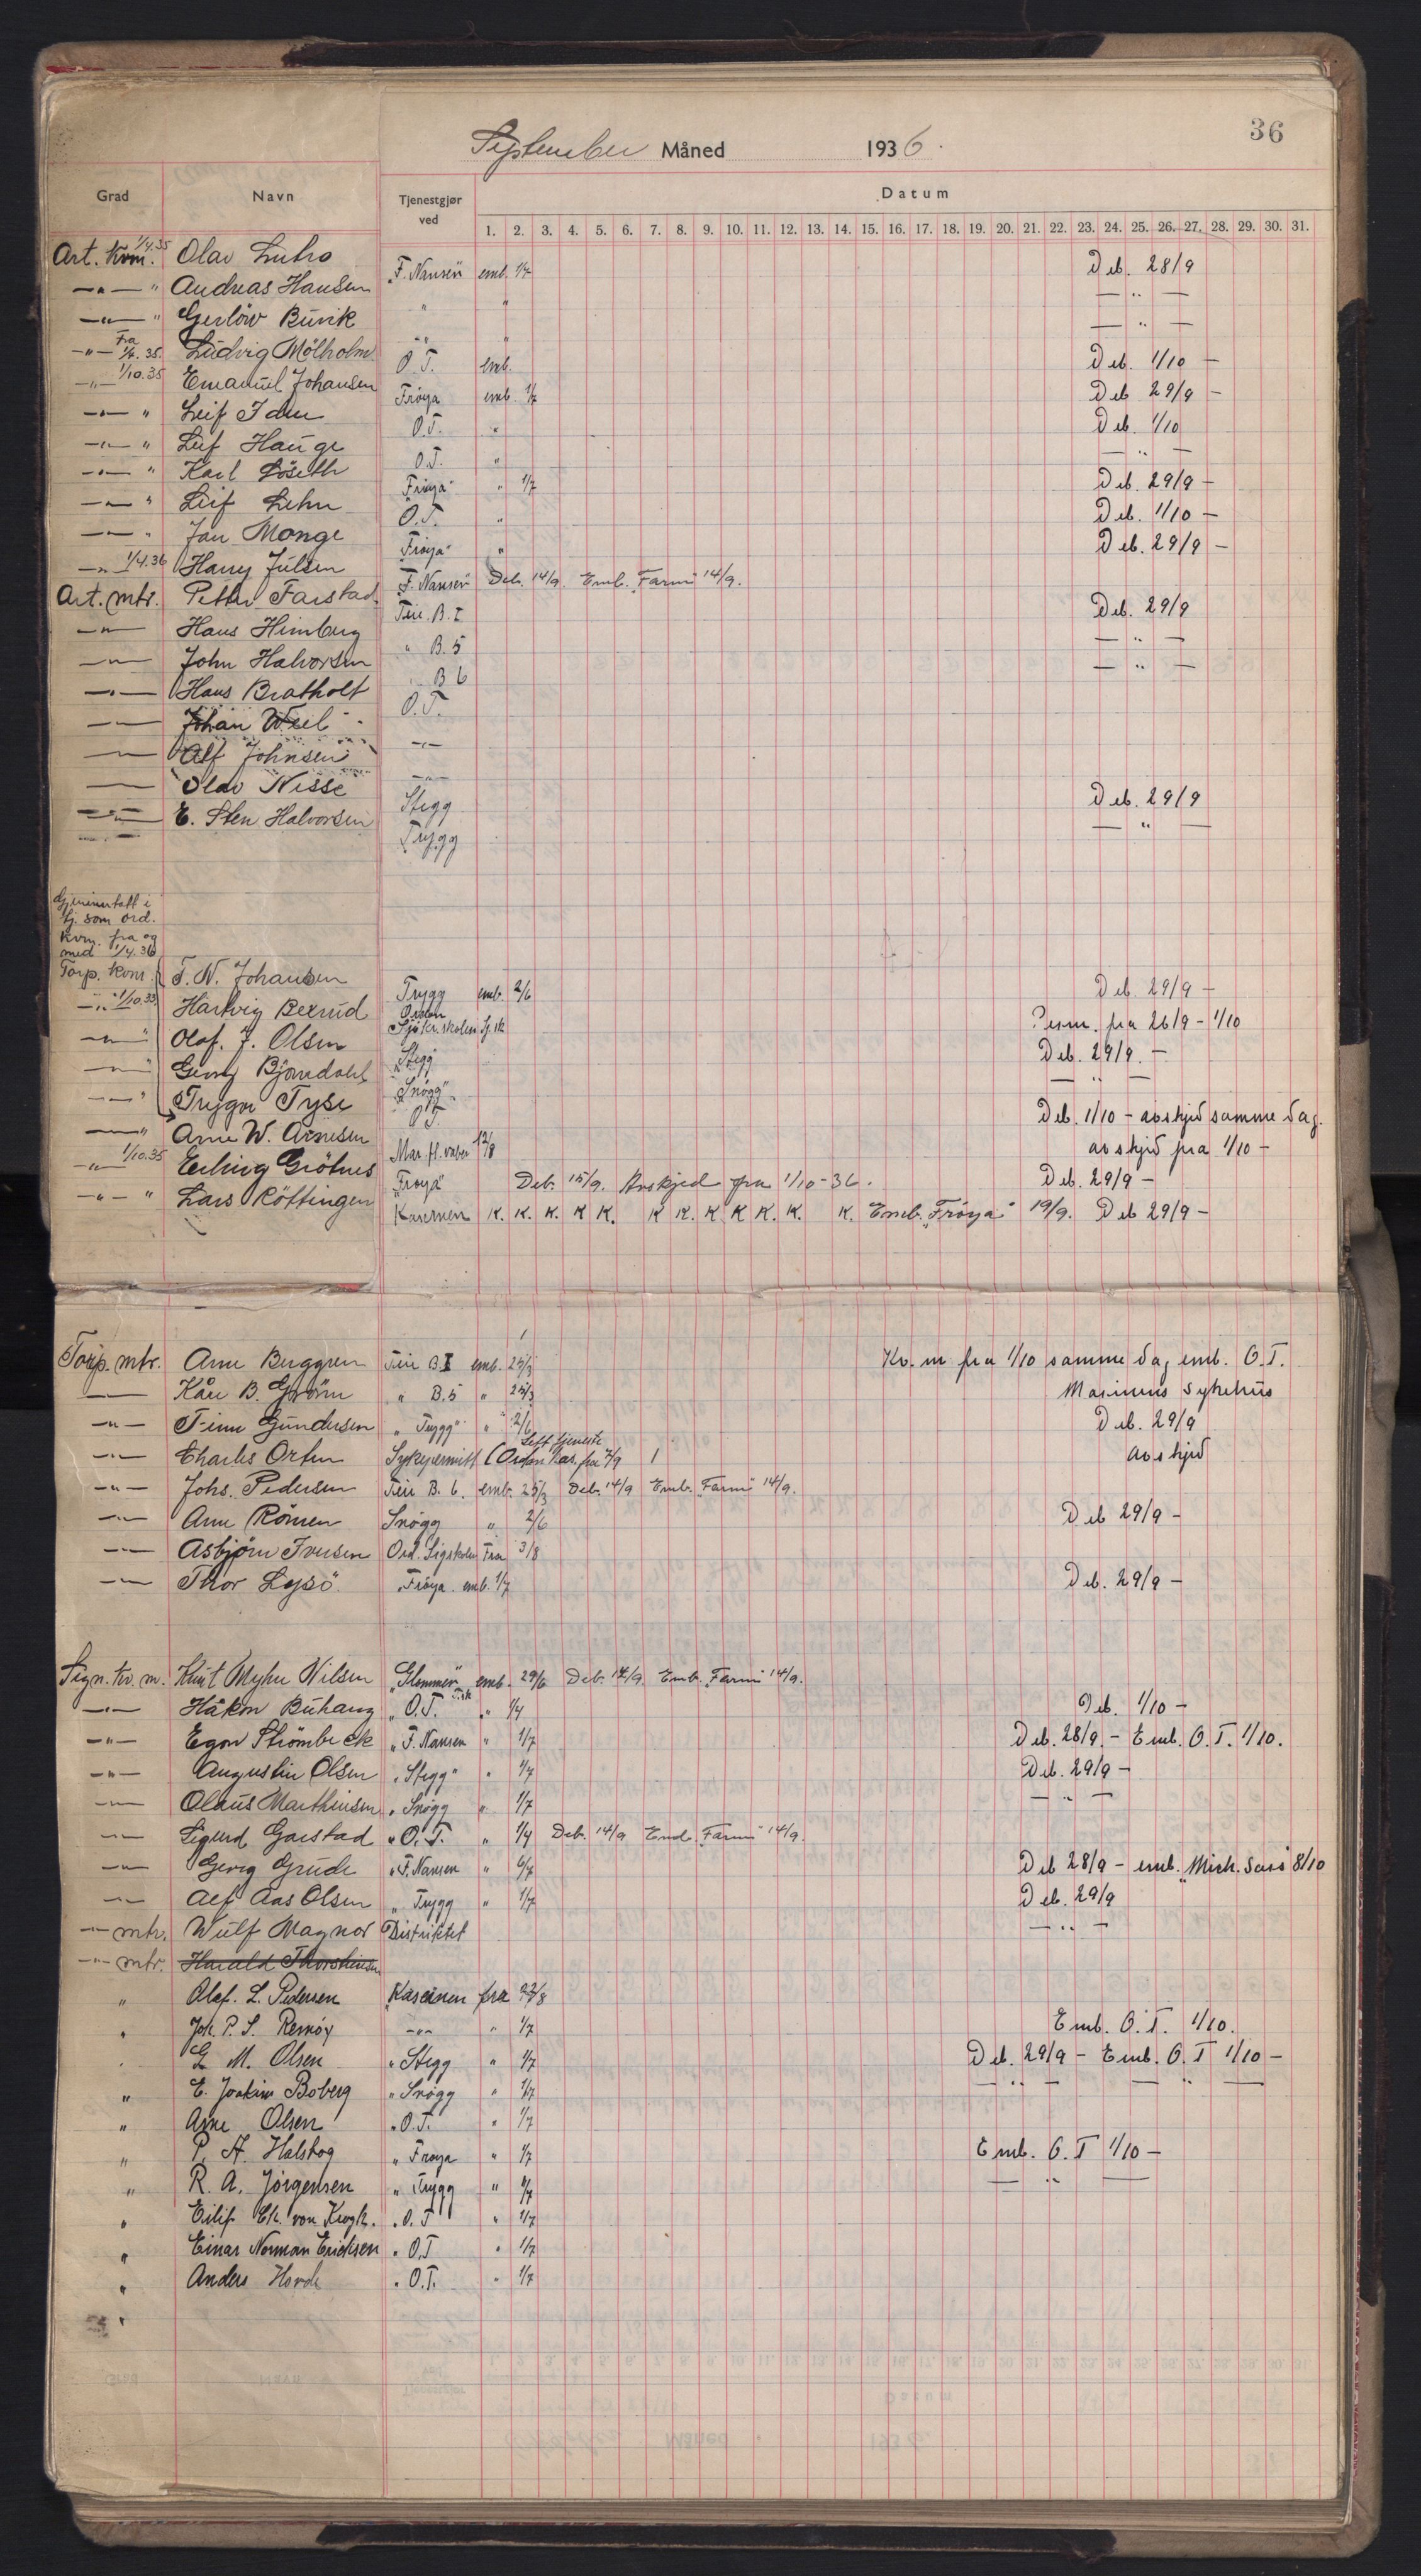 36
September Måned 1936.
Grad Navn Tjenestgjør ved Datum
1. 2. 3. 4. 5. 6. 7. 8. 9. 10. 11. 12. 13. 14. 15. 16. 17. 18. 19. 20. 21. 22. 23. 24. 25. 26. 27. 28. 29. 30. 31.
Art. kvm. 1/4.35 Olav Luho „F. Nansen" emb. 1/7 Deb. 28/9
—"— " Andreas Hansen " " — " —
—"— " Gerlöw Buvik " " " — " —
—"— Fra 1/7.35. Ludvig Mölholm O.T. emb. Deb. 1/10 —
—"— 1/10.35 Emanuel Johansen Fröya emb. 1/7 Deb 29/9 —
—"— " Leif Idsu O.T. " Deb. 1/10
—"— " Leif Hauge O.T. " — " —
—"— " Karl Löseth „Fröya" " 1/7 Deb. 29/9 —
—"— " Leif Lehn O.T. " Deb. 1/10 —
—"— " Jan Monge „Fröya" " Deb. 29/9 —
—"— 1/4.36 Harry Julsen „F. Nansen" Deb. 14/9. Emb. „Farm" 14/9.
Art. mtr. Petter Farstad Teie. B. I Deb. 29/9
—"— Hans Himberg " B. 5 — " —
—"— John Halvorsen " B 6 — " —
—"— Hans Bratholt O.T.
—"— Johan Weel —"—
—"— Alf Johnsen —"—
—"— Olav Nisse Stegg Deb. 29/9
—"— E. Sten Halvorsen Trygg — " —
Gjeninntatt i
tj. som ord.
kvm. fra og
med 1/4.36
Torp. kvm. T. N. Johansen Trygg emb. 2/6 Deb. 29/9 —
—"— 1/10.35 Hartvig Bexrud Sjökr.skolen Sj.sk Perm. fra 26/9 - 1/10
—"— " Olaf. J. Olsen Stegg Deb. 29/9. —
—"— " Georg Björndahl „Snögg" — " —
—"— " Trygve Tyse O.T. Deb. 1/10 - avskjed samme dag.
—"— " Arne W. Arnesen Mar. fl. vaben 12/8 avskjed fra 1/10 —
—"— 1/10.35 Erling Grötnes „Fröya" Deb. 15/9. Avskjed fra 1/10-36. Deb. 29/9 —
—"— " Lars Röttingen Kasernen K. K. K. K K. K K. K K K. K. K. Emb. „Fröya" 19/9. Deb 29/9 —
Torp. mtr. Arne Berggren Teie B. I emb. 25/3 Kv. m fra 1/10 samme dag emb. O.T.
—"— Kåre B. " B. 5 " 25/3 Marinens sykehus
—"— Finn Gundersen „Trygg" " 2/6 Deb. 29/9
—"— Charles Orten Sykepermitt (Orden kas. fra 7/9 Lett tjeneste avskjed
—"— Johs. Pedersen Teie B. 6. emb. 25/3 Deb. 14/9 Emb. „Farm" 14/9.
—"— Arne Römen Snögg " 2/6 Deb 29/9 —
—"— Asbjörn Iversen Ord. Sigskolen Fra 3/8
—"— Thor Lysö. „Fröya. emb. 1/7 Deb. 29/9 —
Sign. kv. m. Knut Myhre Nilsen „Glommen" emb. 29/6 Deb. 14/9 Emb. „Farm" 14/9.
—"— Håkon Buhaug „O.T. " 1/4 Deb. 1/10 —
—"— Egon Strömbeck „F. Nansen " 1/7 Deb. 28/9. - Emb. O.T. 1/10.
—"— Augustin Olsen „Stegg" " 1/7 Deb. 29/9 —
—"— Olaus Marthinsen „Snögg " 1/7 — " —
—"— Sigurd Garstad „O.T. " 1/4 Deb. 14/9 Emb. „Farm" 14/9.
—"— Georg Grude „F. Nansen " 6/7 Deb 28/9 - emb. „Mich. Sars" 8/10
—"— Alf Aas Olsen „Trygg " 1/7 Deb. 29/9
—"— mtr. Wulf Magnor Distriktet — " —
—"— mtr. Harald Thorstensen
" Olaf. L. Pedersen Kasernen fra 22/8
" Joh. P. S. Remöy —"— " 1/7 Emb. O.T. 1/10.
" G M. Olsen „Stegg " 1/7 Deb. 29/9 - Emb. O.T 1/10 —
" E. Joakim Boberg „Snögg " 1/7 — " — — " —
" Arne Olsen „O.T. " 1/7
" P. A. Halskog „Fröya " 1/7 Emb. O.T 1/10 —
" R. A. Jörgensen „Trygg " 1/7 — " —
" Eilif Chr. von Krogh. „O.T " 1/7
" Einar Norman Ericksen „O.T " 1/7
" Anders Horde „O.T. " 1/7
"